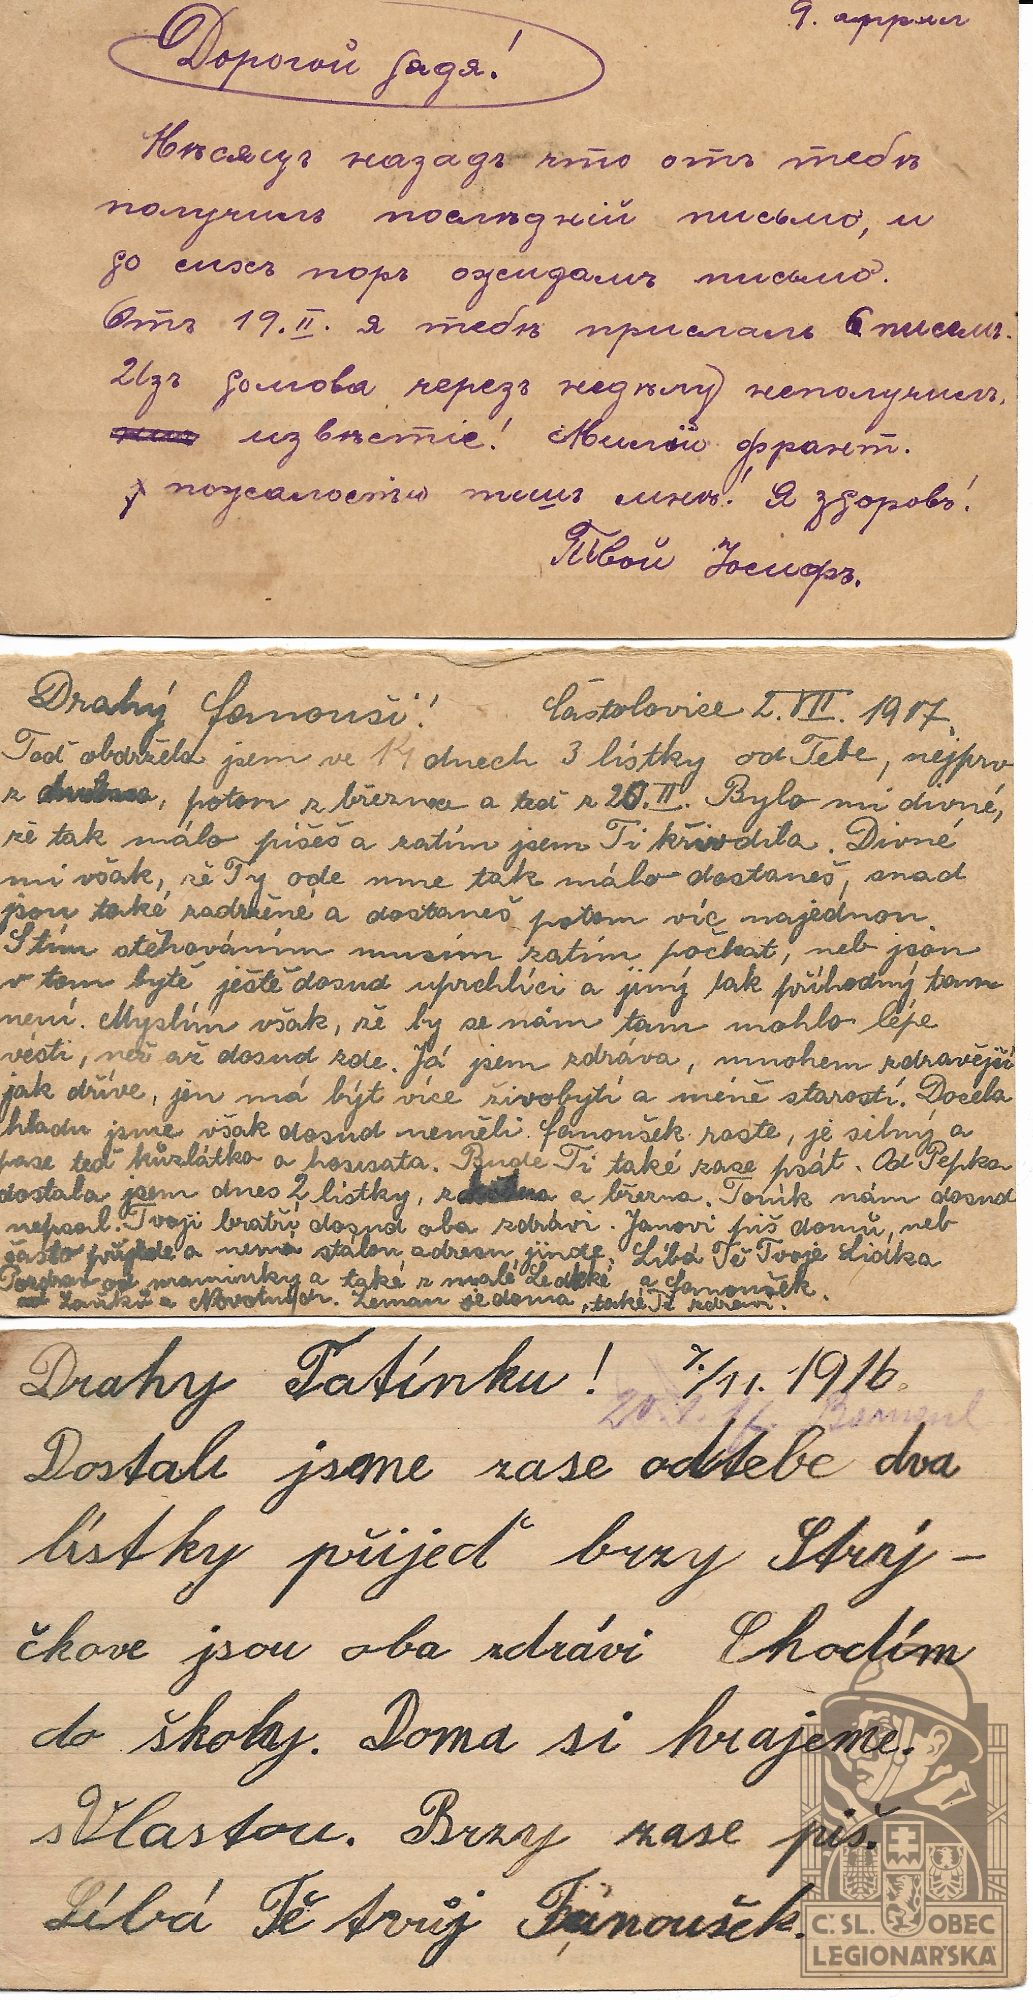 9. апрѣл
Дорогой дядя!
Мѣсяцъ назадъ что отъ тебѣ
получилъ послѣдній письмо, и
до сихъ поръ ожидамъ письмо.
Отъ 19. II. я тебѣ прислалъ 6 писемъ.
Изъ домова черезъ недѣлу неполучилъ
извѣстіе! Милій франт.
пожалостѣю пиш мнѣ! Я здоровъ!
Твой Іосифъ.
Drahý Fanouši! Častolovice 2. VII. 1917.
Teď obdržela jsem ve 14 dnech 3 lístky od Tebe, nejprv
z, potom z března a teď z 20. II. Bylo mi divné,
že tak málo píšeš a zatím jsem Ti křivdila. Divné
mi však, že Ty ode mne tak málo dostaneš, snad
jsou také zadržené a dostaneš potom víc najednou.
S tím stěhováním musím zatím počkat, neb jsou
v tom bytě ještě dosud uprchlíci a jiný tak příhodný tam
není. Myslím však, že by se nám tam mohlo lépe
vésti, než až dosud zde. Já jsem zdráva, mnohem zdravější
jak dříve, jen má být více živobytí a méně starostí. Docela
hladu jsme však dosud neměli. Fanoušek roste, je silný a
pase teď kůzlátko a housata. Bude Ti také zase psát. Od Pepka
dostala jsem dnes 2 lístky, z a března. Toník nám dosud
nepsal. Tvoji bratři dosud oba zdrávi. Janovi piš domů, neb
často přijede a nemá stálou adresu jinde. Líbá Tě Tvoje Lidka
Pozdrav od maminky a také z malé Ledské a Fanoušek.
Zaňků a Novotných. Zeman je doma, také Tě zdraví.
Drahy Tatínku! 7./11. 1916.
20. 1. 17. Barnaul
Dostali jsme zase odtebe dva
lístky přijeď brzy Strý-
čkove jsou oba zdrávi Chodím
do školy. Doma si hrajeme.
s Vlastou. Brzy zase piš.
Líbá Tě tvůj Fanoušek.
Č. SL. OBEC
LEGIONÁŘSKÁ